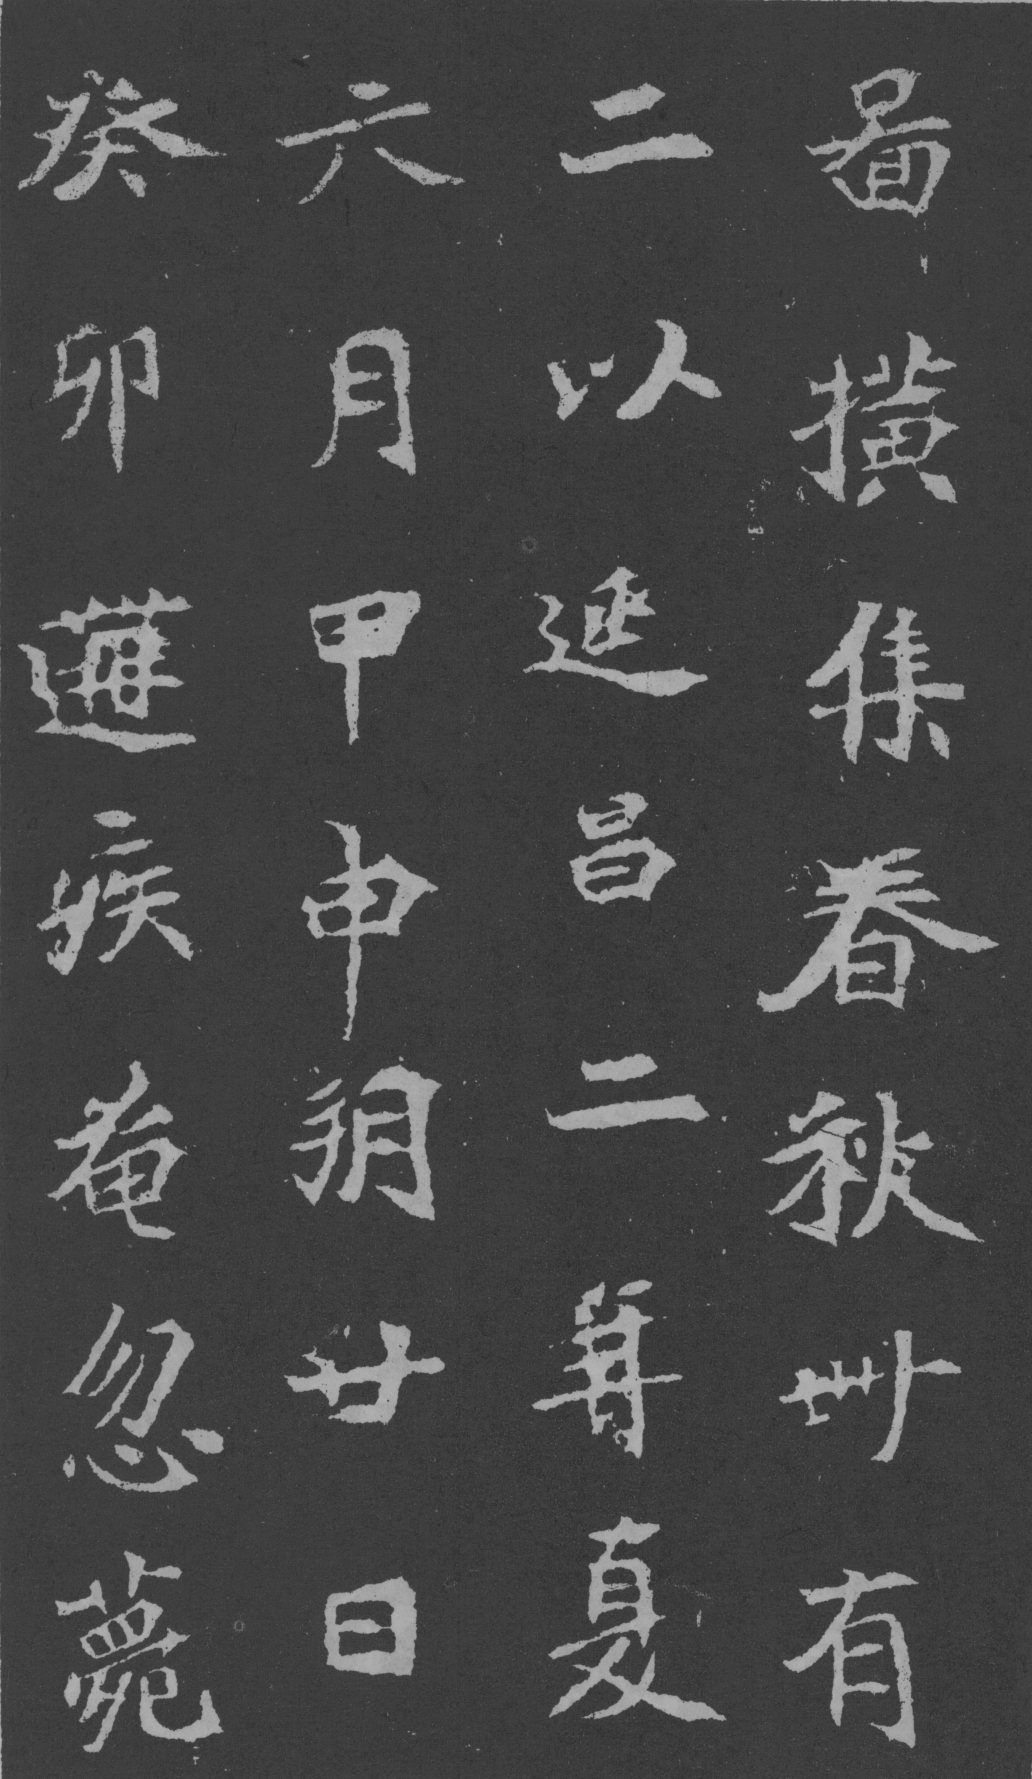 啚撗集春秋卅有
二以延昌二年夏
六月甲申朔廿日
癸卯遘疾奄忽薨